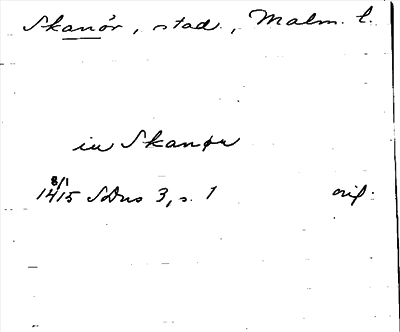 Skanör, stad, Malm. l.
in Skanør
8/1
1415 SDns 3, s. 1 orig.